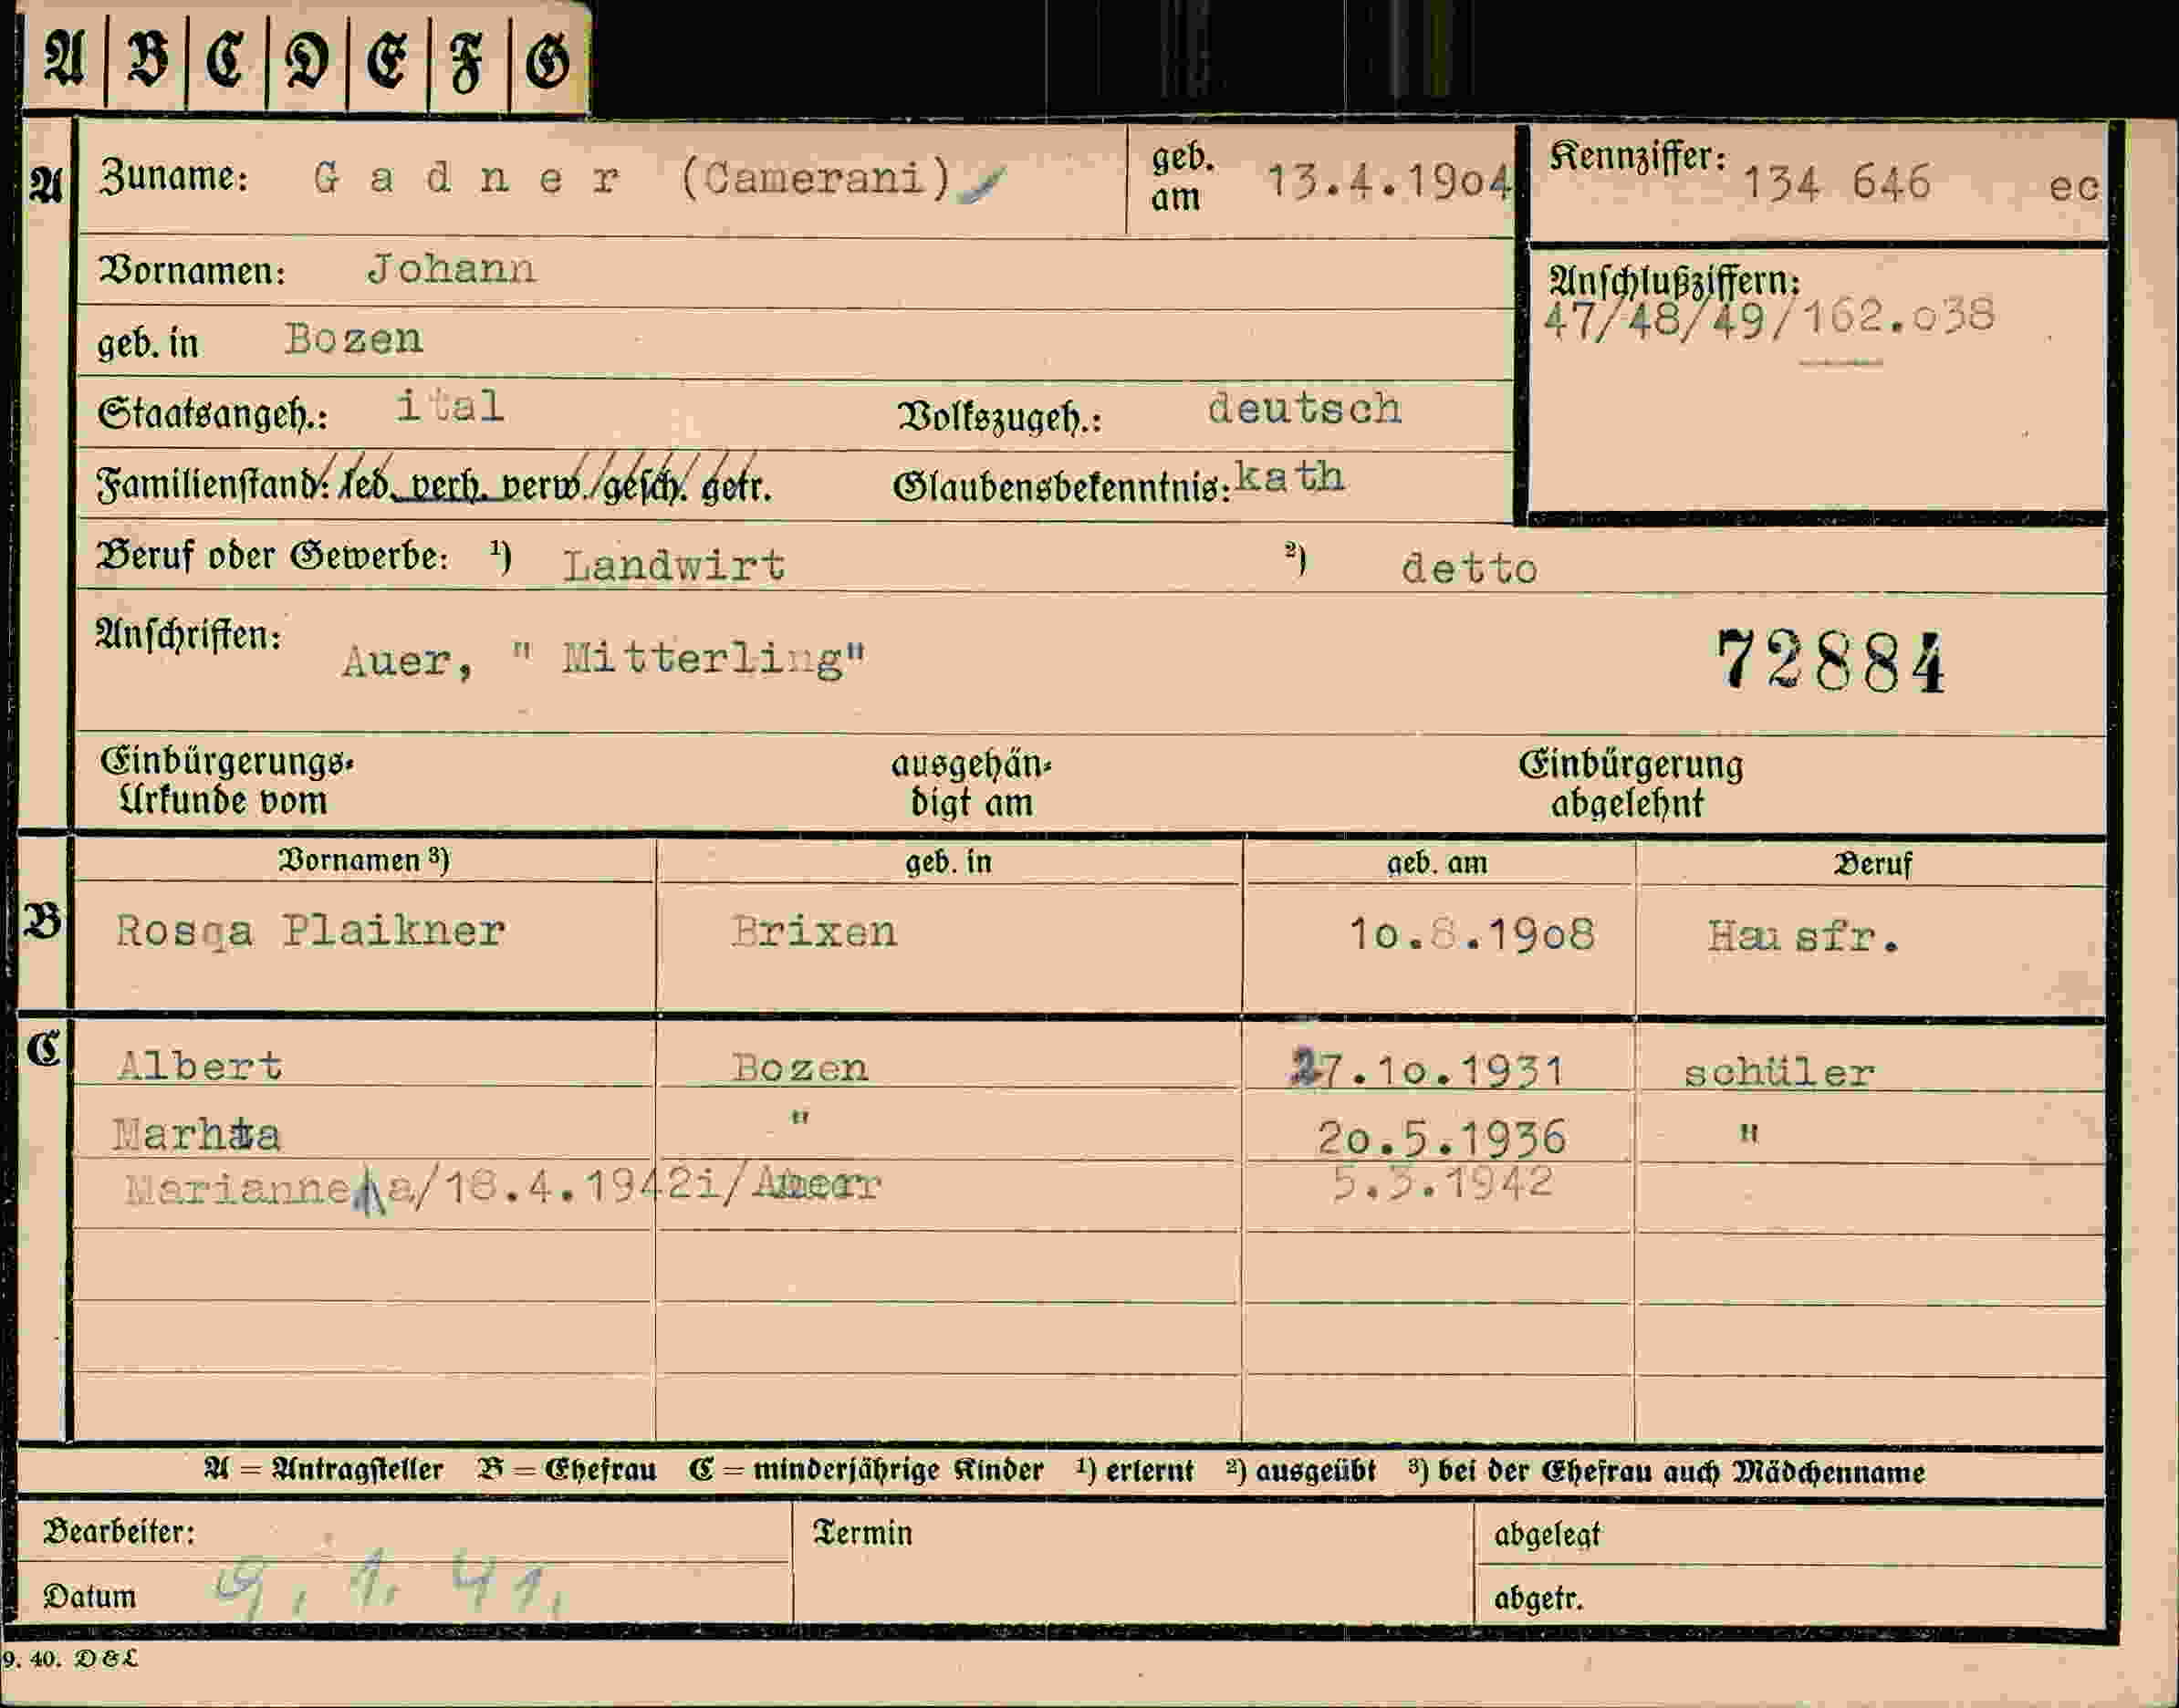 A B C D E F G
A Zuname: Gadner (Camerani) geb. am 13.4.19o4 Kennziffer: 134 646 ec
Vornamen: Johann
Anschlußziffern:
47/48/49/162.o38
geb. in Bozen
Staatsangeh.: ital Volkszugeh.: deutsch
Familienstand: led. verh. verw. gesch. getr. Glaubensbekenntnis: kath
Beruf oder Gewerbe: ¹) Landwirt ²) detto
Anschriften: Auer, " Mitterling" 72884
Einbürgerungs- ausgehän- Einbürgerung
Urkunde vom digt am abgelehnt
Vornamen ³) geb. in geb. am Beruf
B Rosqa Plaikner Brixen 1o.8.19o8 Hausfr.
C Albert Bozen 27.1o.1931 schüler
Marhta " 2o.5.1936 "
Marianne a/18.4.1942i/Auer 5.3.1942
A = Antragsteller B = Ehefrau C = minderjährige Kinder ¹) erlernt ²) ausgeübt ³) bei der Ehefrau auch Mädchenname
Bearbeiter: Termin abgelegt
Datum 9. 1. 41. abgetr.
9. 40. D & L